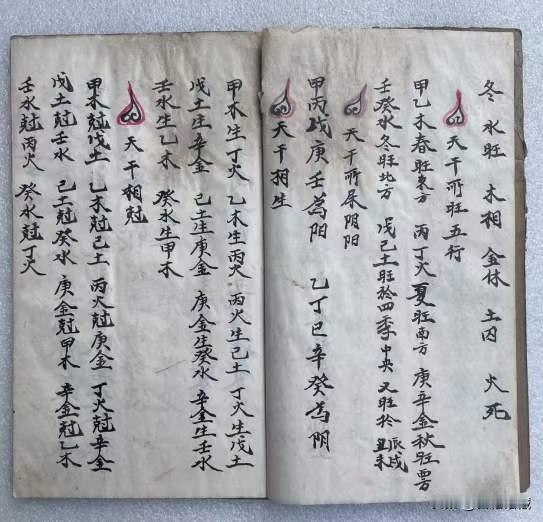 冬水旺 木相 金休 土囚 火死
天干所旺五行
甲乙木春旺東方 丙丁火夏旺南方 庚辛金秋旺西方
壬癸水冬旺北方 戊己土旺於四季中央 又旺於辰戌丑未
天干所属阴阳
甲丙戊庚壬為阳 乙丁己辛癸為阴
天干相生
甲木生丁火 乙木生丙火 丙火生己土 丁火生戊土
戊土生辛金 己土生庚金 庚金生癸水 辛金生壬水
壬水生乙木 癸水生甲木
天干相尅
甲木尅戊土 乙木尅己土 丙火尅庚金 丁火尅辛金
戊土尅壬水 己土尅癸水 庚金尅甲木 辛金尅乙木
壬水尅丙火 癸水尅丁火